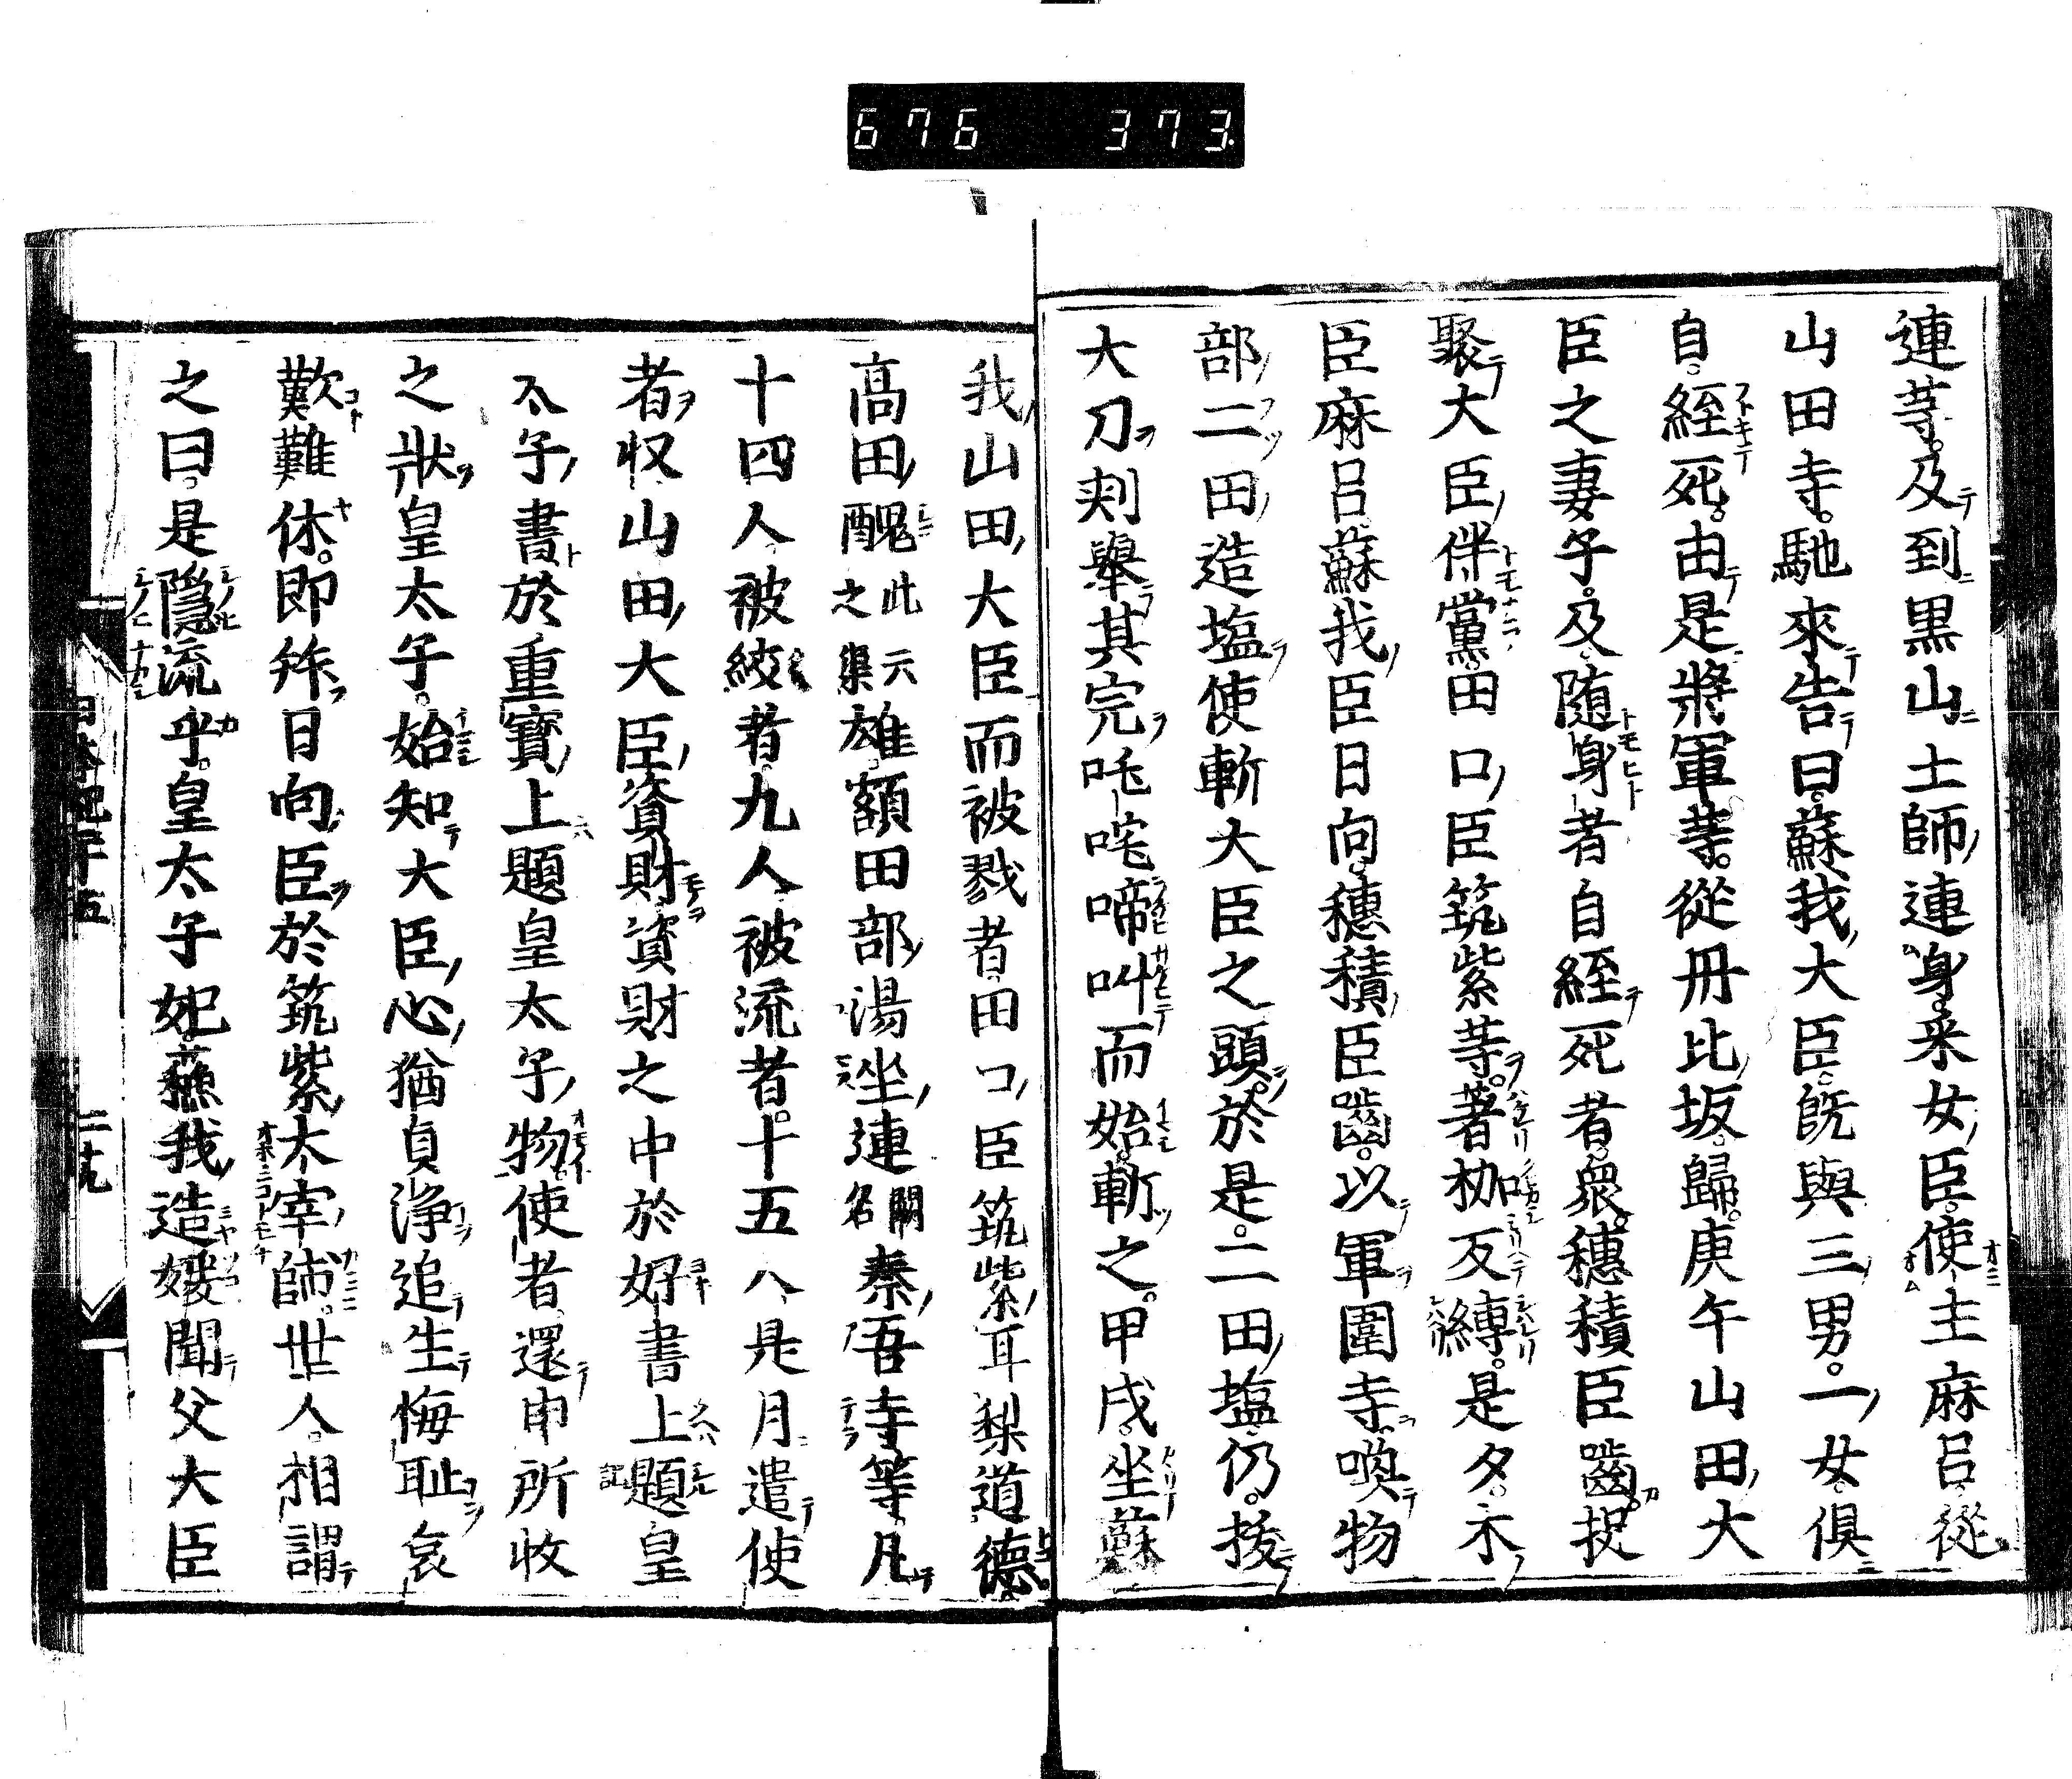 676 373
連等及到黒山土師連身釆女臣使主麻呂從
山田寺馳來告曰蘇我大臣既與三男一女俱
自經死由是將軍等從丹比坂歸庚午山田大
臣之妻子及随身者自經死者衆穗積臣嚙捉
聚大臣伴黨田口臣筑紫等著枷反縛是夕木
臣麻呂蘇我臣日向穗積臣嚙以軍圍寺喚物
部二田造塩使斬大臣之頭於是二田塩仍拔
大刀刾擧其完吒咤啼叫而始斬之甲戌坐蘇
我山田大臣而被戮者田口臣筑紫耳梨道德
高田醜此云之渠雄額田部湯坐連闕名秦吾寺等凡
十四人被絞者九人被流者十五人是月遣使
者収山田大臣資財資財之中於好書上題皇
太子書於重寶上題皇太子物使者還申所收
之狀皇太子始知大臣心猶貞淨追生悔恥哀
歎難休即拜日向臣於筑紫大宰師世人相謂
之曰是隱流乎皇太子妃蘇我造媛聞父大臣
日本紀二十五 二十九